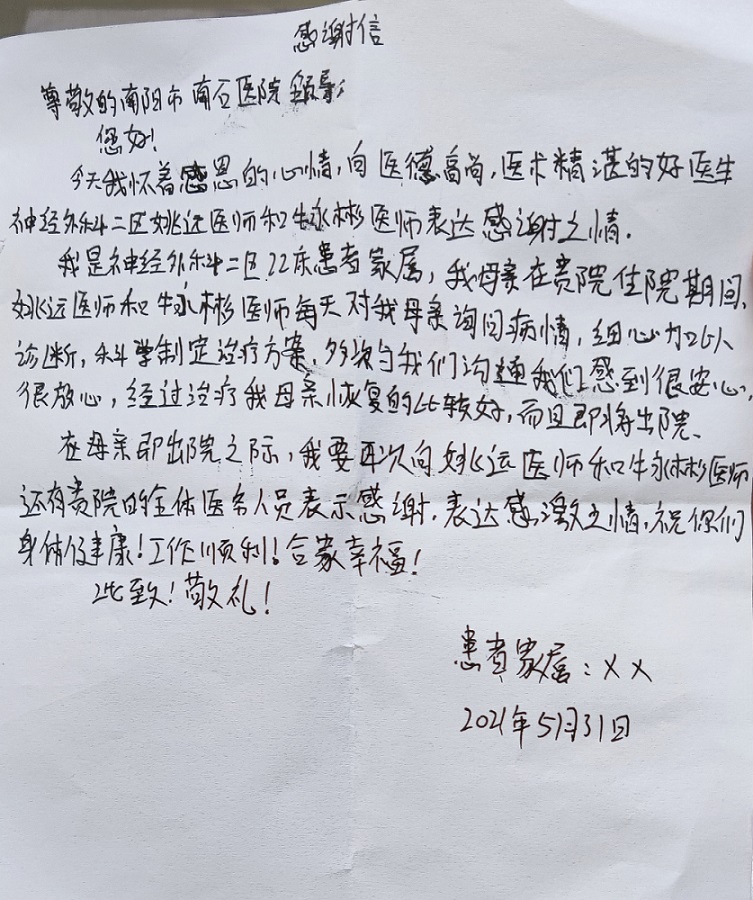 感谢信
尊敬的南阳市南石医院领导:
您好!
今天我怀着感恩的心情,向医德高尚,医术精湛的好医生
神经外科二区姚远医师和牛永彬医师表达感谢之情.
我是神经外科二区22床患者家属,我母亲在贵院住院期间,
姚远医师和牛永彬医师每天对我母亲询问病情,细心
诊断,科学制定治疗方案,多次与我们沟通我们感到很安心,
很放心,经过治疗我母亲恢复的比较好,而且即将出院、
在母亲即出院之际,我要再次向姚远医师和牛永彬医师
还有贵院的全体医务人员表示感谢,表达感激之情,祝你们
身体健康!工作顺利!合家幸福!
此致!敬礼!
患者家属:XX
2021年5月31日